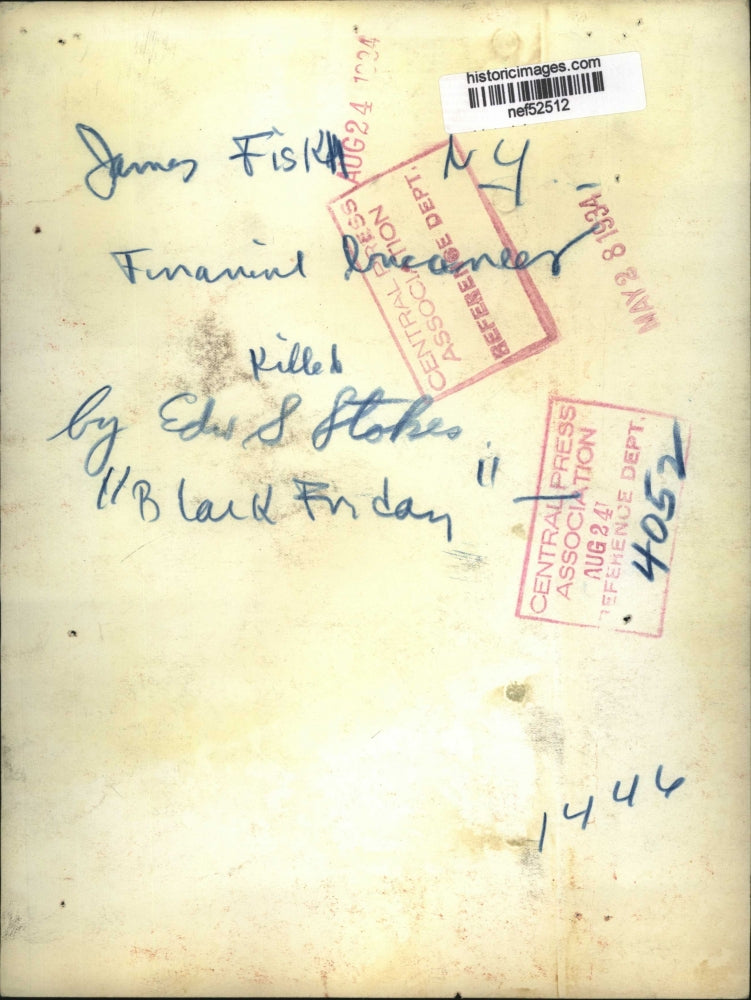 historicimages.com
nef52512
AUG 24 1934
James Fisk NY
CENTRAL PRESS
ASSOCIATION
REFERENCE DEPT.
MAY 28 1934
Financial buccaneer
Killed
by Edw S Stokes
"Black Friday" —
CENTRAL PRESS
ASSOCIATION
AUG 24
REFERENCE DEPT.
4052
1446